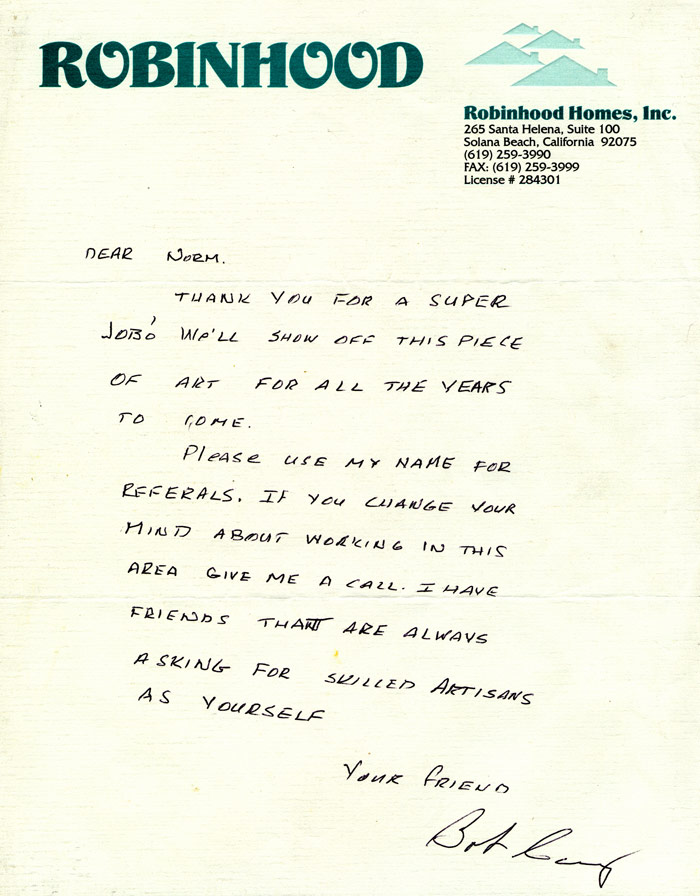 ROBINHOOD
Robinhood Homes, Inc.
265 Santa Helena, Suite 100
Solana Beach, California 92075
(619) 259-3990
FAX: (619) 259-3999
License # 284301
DEAR NORM.
THANK YOU FOR A SUPER
JOB! WE'LL SHOW OFF THIS PIECE
OF ART FOR ALL THE YEARS
TO COME.
Please USE MY NAME FOR
REFERALS. IF YOU CHANGE YOUR
MIND ABOUT WORKING IN THIS
AREA GIVE ME A CALL. I HAVE
FRIENDS THAT ARE ALWAYS
ASKING FOR SKILLED ARTISANS
AS YOURSELF
YOUR FRIEND
Bob